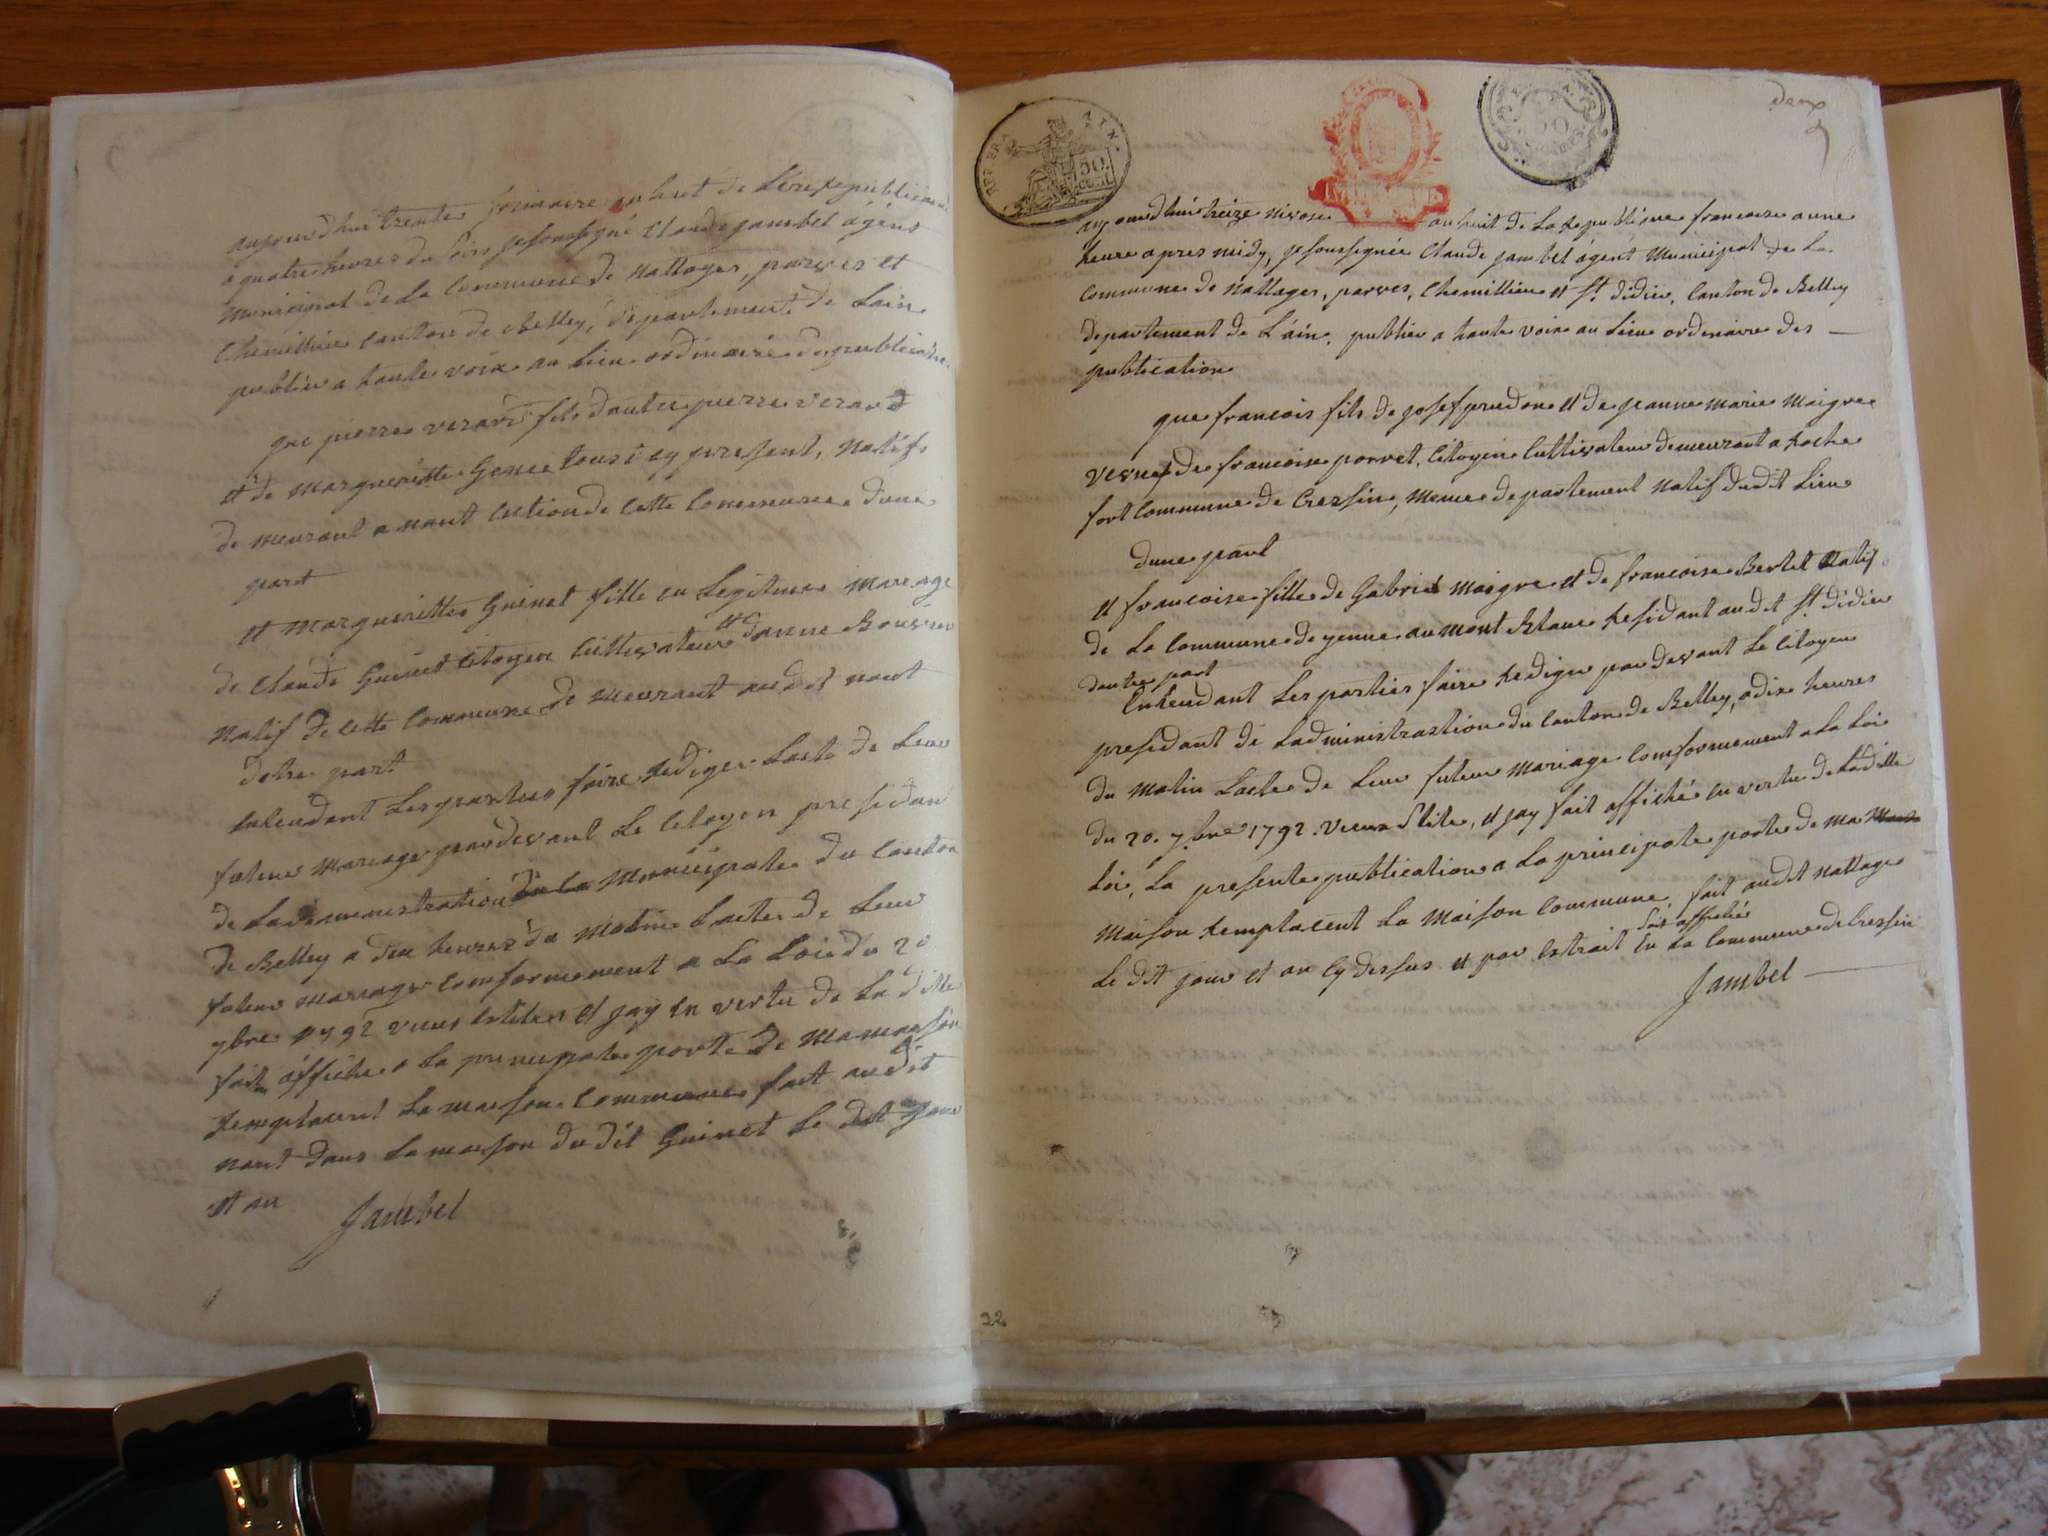 aujourdhui trente frimaire an huit de Lere republicaine
a quatre heures du soir je soussigné Claude jambel agent
municipal de La Commune de nattages, parves et
Chemillieu canton de Belley, departement de Lain
publier a haute voix au Lieu ordinaire des publications
que pierre verard fils dautre pierre verard
et de margueritte tous icy present, natifs
de meurant a nant de cette Commune dune
part
et margueritte Guinet fille en Legitime mareage
de Claude Guinet Citoyen Cultivateur et danne
natif de cette Commune de meurant audit nant
dotre part
entendant Les parties faire Rediger Lacte de Leur
future mariage pardevant Le Citoyen presidant
de Ladmenistration de La Municipale du Canton
de Belley a dix heures du matin Lacte de Leur
future mariage comformement a La Loi du 20
7bre 1792 vieux Stile et jay en vertu de La ditte
fait affiche a La principale porte de ma maison
Remplacent La maison Commune fait audit
nant dans La maison du dit Guinet Le dit jour
et an
Jambel
REP FRA
50
CENT
deux
aujourdhui treize nivose an huit de La Republique francoise a une
heure apres midy, je soussignée Claude jambel agent Municipal de La
Commune de Nattages, parves, Chemillieu et St. didier, Canton de Belley
departement de L'ain, publier a haute voix au Lieu ordinaire des
publication
que francois fils de josef prudon et de jeanne marie Maigre
vesnef de francoise porret, Citoyen Cultivateur demeurant a Roche
fort Commune de Cressin, meme departement natif dudit Lieu
dune part
et francoise fille de Gabriel Maigre et de francoise Bertet Natif
de La Commune de yenne au mont Blanc Residant audit St. didier
dautre part
Entendant Les parties faire Redigir par devant Le Citoyen
presidant de Ladministrastion du Canton de Belley, a dix heures
du matin Lacte de Leur future mariage comformement a La Loi
du 20. 7.bre 1792. vieux Stile, et jay fait affiché en vertu de Laditte
Loi, La presente publication a La principale porte de ma
maison Remplacent La Maison Commune, fait audit nattage
fait affiché
Le dit jour et an Cy dessus et par Extrait En La Commune de Cressin
Jambel
22